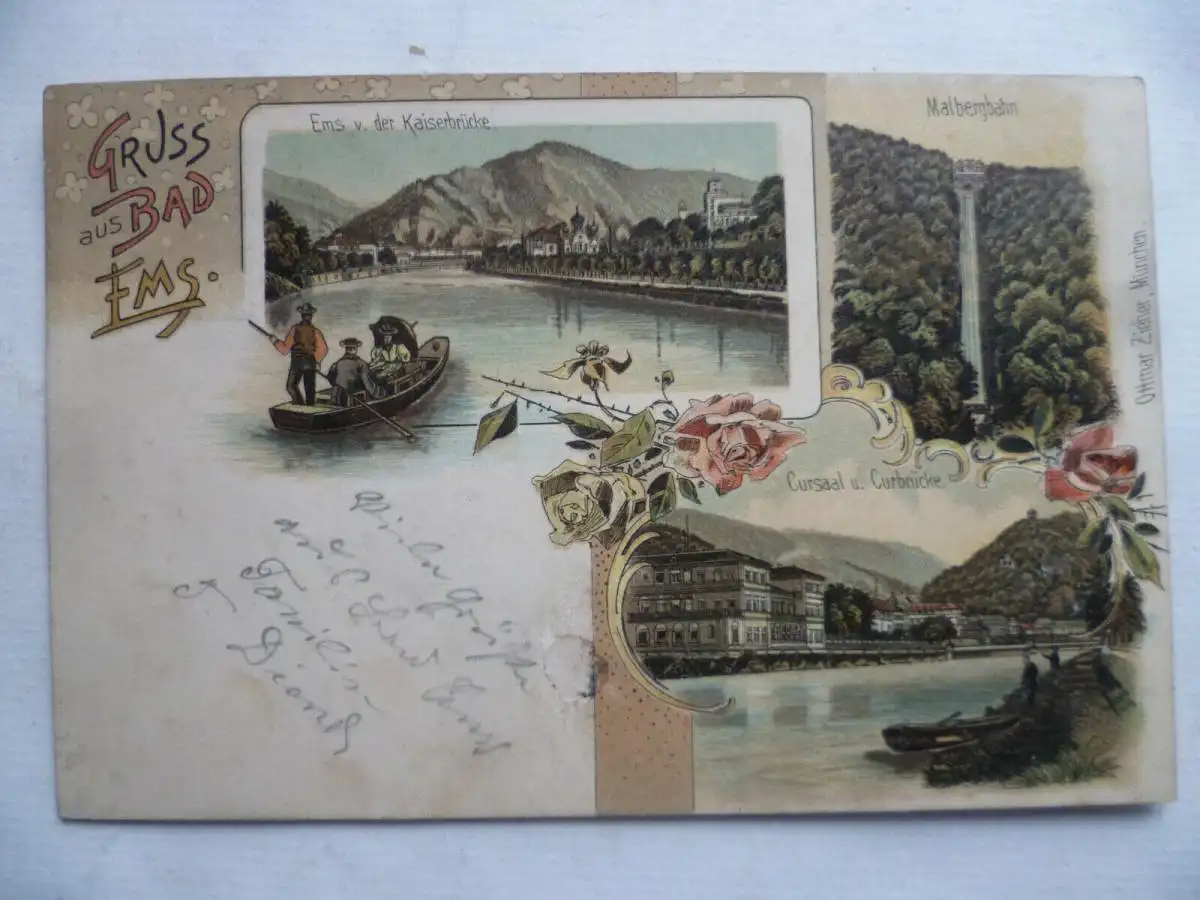 GRUSS
aus BAD
EMS.
Ems v. der Kaiserbrücke.
Malbergbahn
Ottmar Zieher, München.
Cursaal u. Curbrücke
Viele Grüße
und
Familie